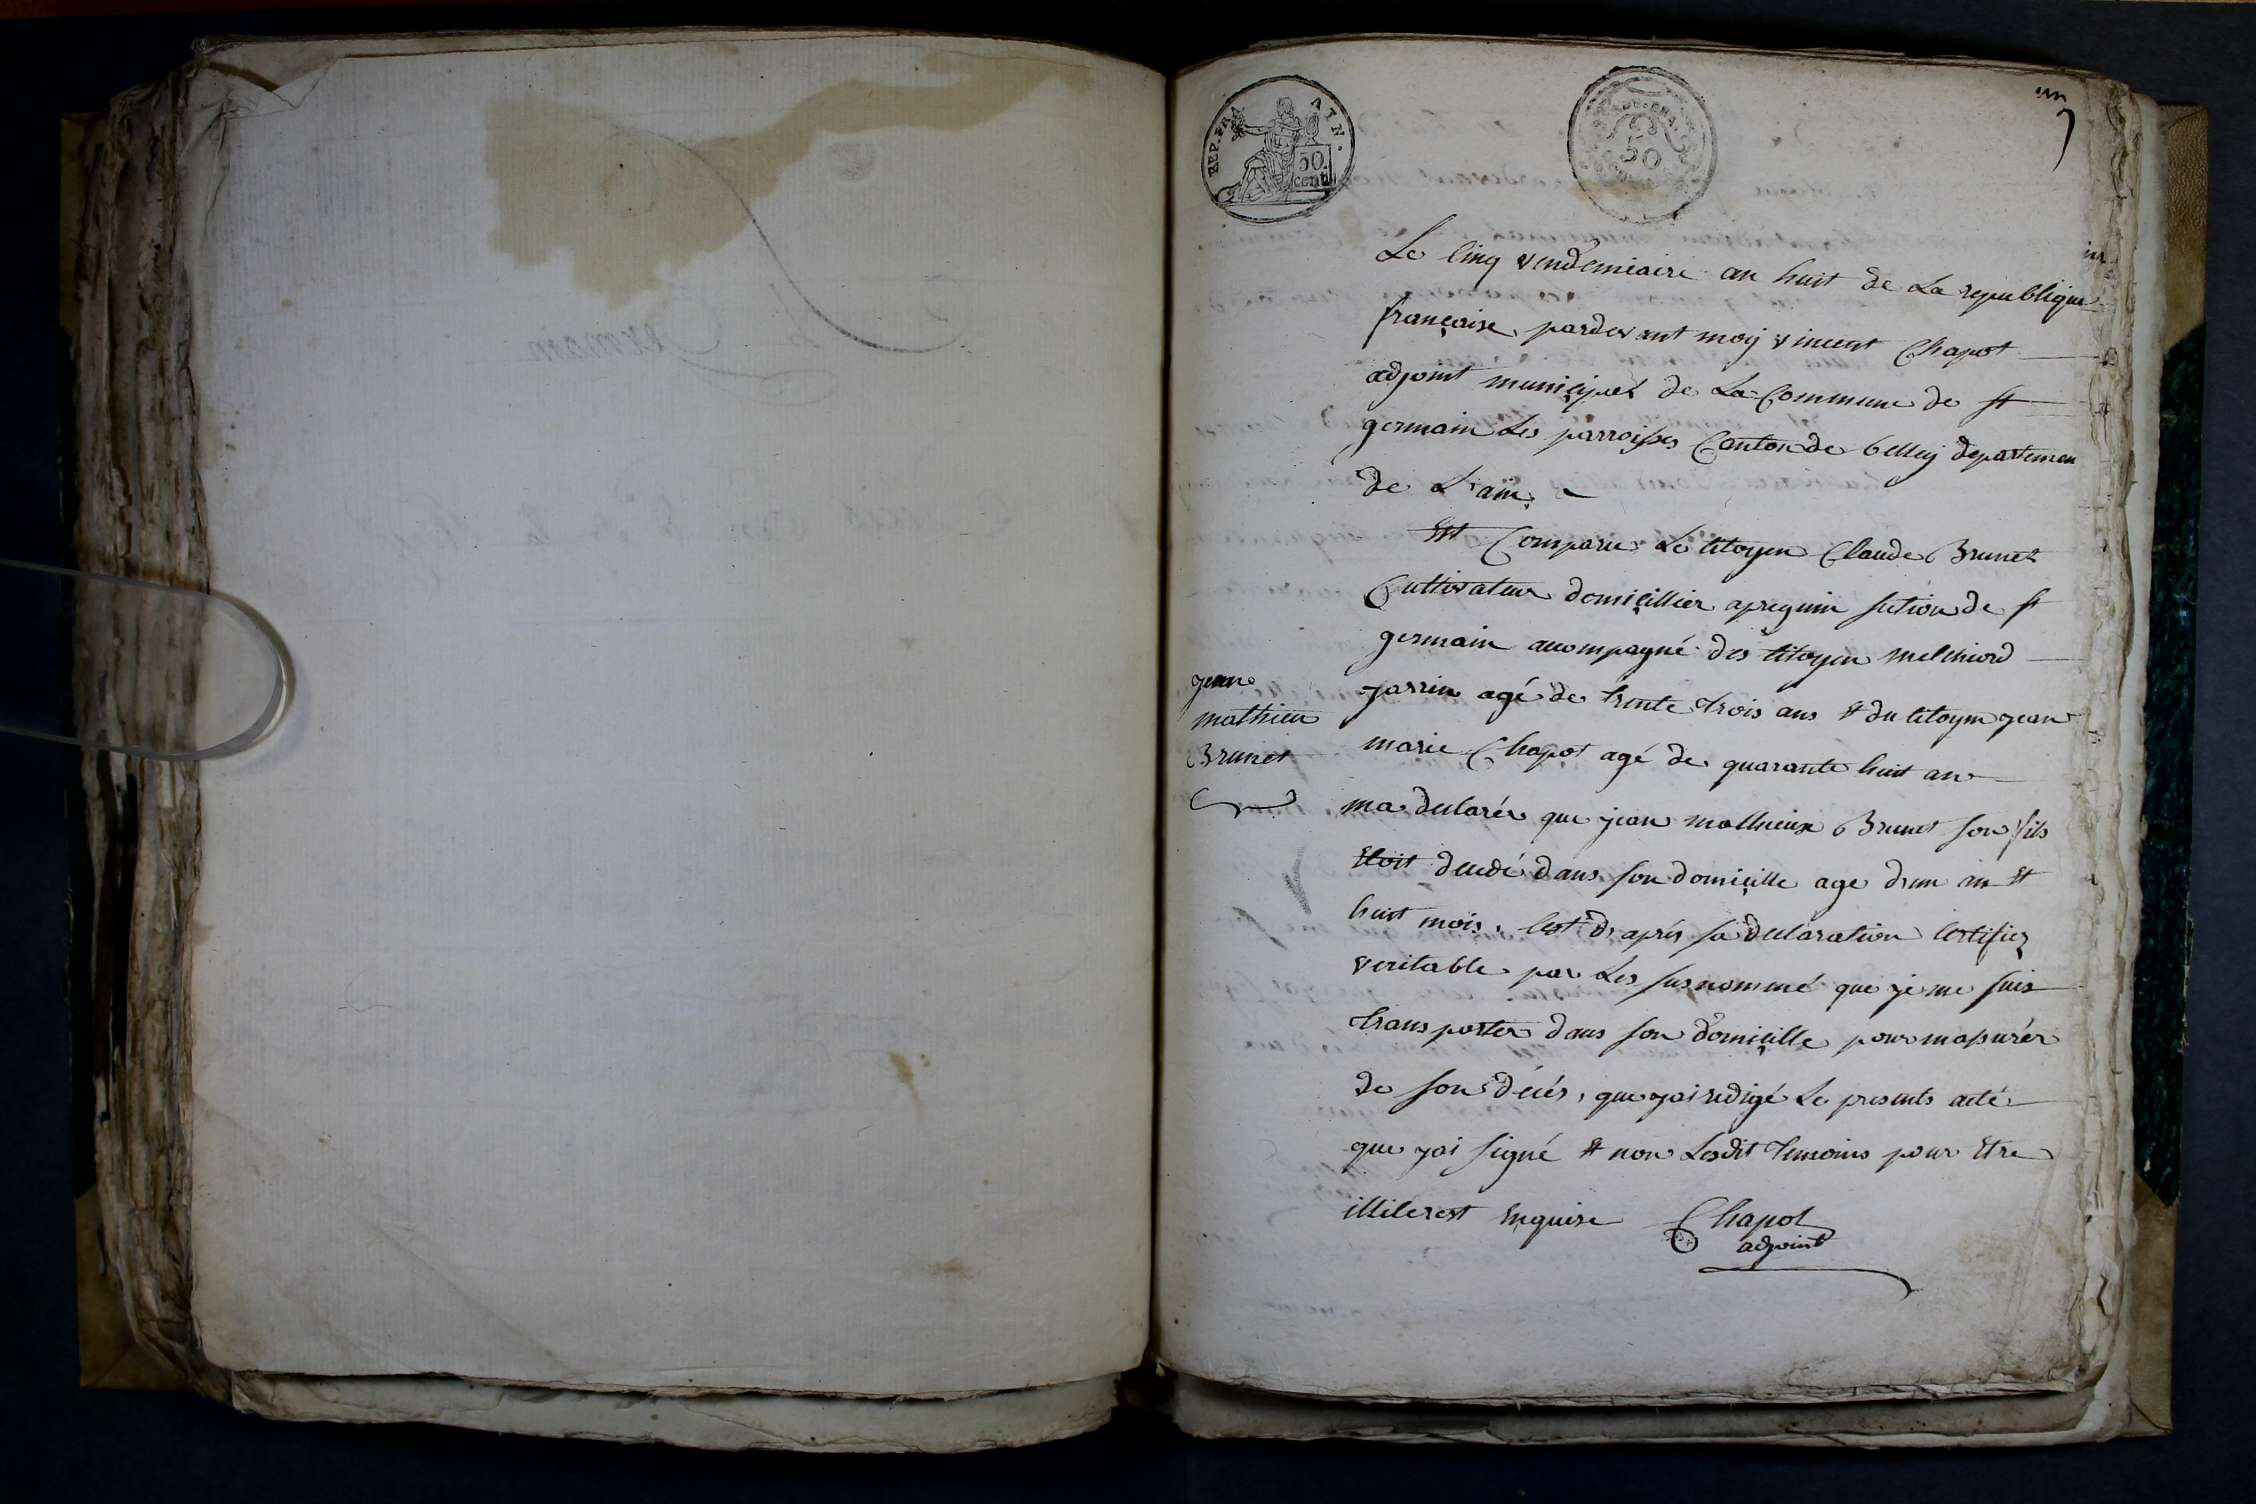 REP. FRA AIN.
50
cent.
50
un
Le cinq vendemiaire an huit de La republique
françaïse, pardevant moÿ vincent Chapot
adjoint municipal de La Commune de st
germain Les parroisses Canton de belleÿ departemen
de L'ain
Est Comparu Le citoyen Claude Brunet
Cultivateur domicillier apregnin section de st
germain acompagné des citoyen melchiord
jarrin agé de trente trois ans et du citoyen jean
marie Chapot agé de quarante huit an
ma declarér que jean mathieux Brunet son fils
Etoit decedé dans son domicille age d'un an et
huit mois, cest d'aprés sa declaration certifiez
veritable par Les susnommé que je me suis
transporter dans son domicille pour massurér
de son décés, que jai redigé Le presents acté
que jai signé et non Lesdit temoins pour Etre
illiterest enquise Chapot
adjoint
jean
mathieu
Brunet